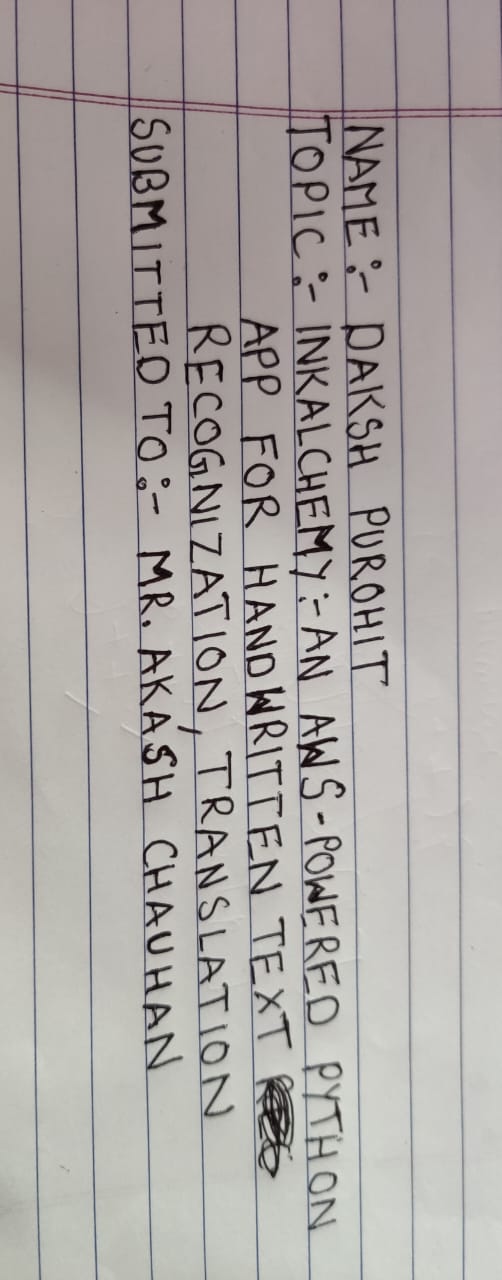 NAME :- DAKSH PUROHIT
TOPIC :- INKALCHEMY :- AN AWS-POWERED PYTHON
APP FOR HANDWRITTEN TEXT
RECOGNIZATION, TRANSLATION
SUBMITTED TO :- MR. AKASH CHAUHAN